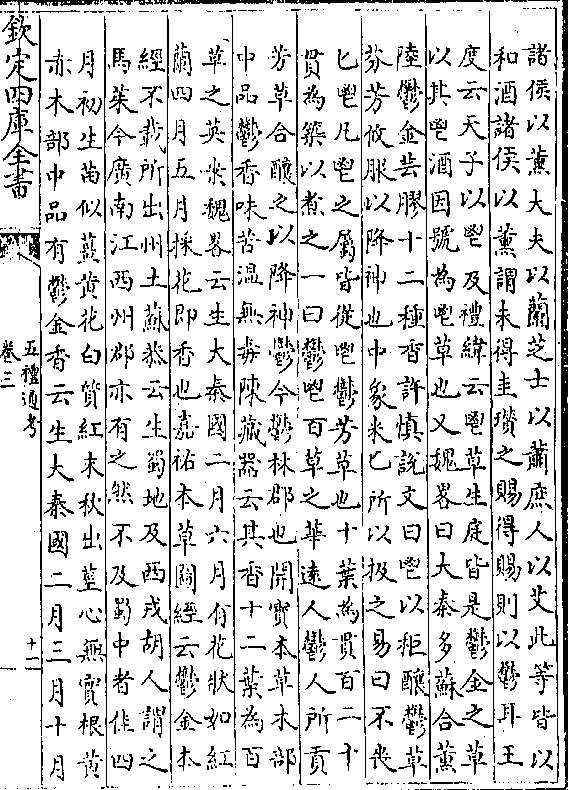 諸侯以薰大夫以蘭芝士以蕭庶人以艾此等皆以
和酒諸侯以薰謂未得圭瓚之賜得賜則以鬱耳王
度云天子以鬯及禮緯云鬯草生庭皆是鬱金之草
以其鬯酒因號為鬯草也又魏畧曰大秦多蘇合薰
陸鬱金芸膠十二種香許慎説文曰鬯以秬釀鬱草
芬芳攸服以降神也中象米匕所以扱之易曰不喪
匕鬯凡鬯之屬皆從鬯鬱芳草也十葉為貫百二十
貫為築以煮之一曰鬱鬯百草之華逺人鬱人所貢
芳草合釀之以降神鬱今鬱林郡也開寶本草木部
中品鬱香味苦温無毒陳藏器云其香十二葉為百
草之英米魏畧云生大秦國二月六月有花狀如紅
蘭四月五月採花即香也嘉祐本草圖經云鬱金本
經不載所出州土蘇恭云生蜀地及西戎胡人謂之
馬蒁今廣南江西州郡亦有之然不及蜀中者佳四
月初生苗似薑黄花白質紅末秋出莖心無實根黄
赤木部中品有鬱金香云生大秦國二月三月十月
欽定四庫全書
五禮通考
卷三
十一